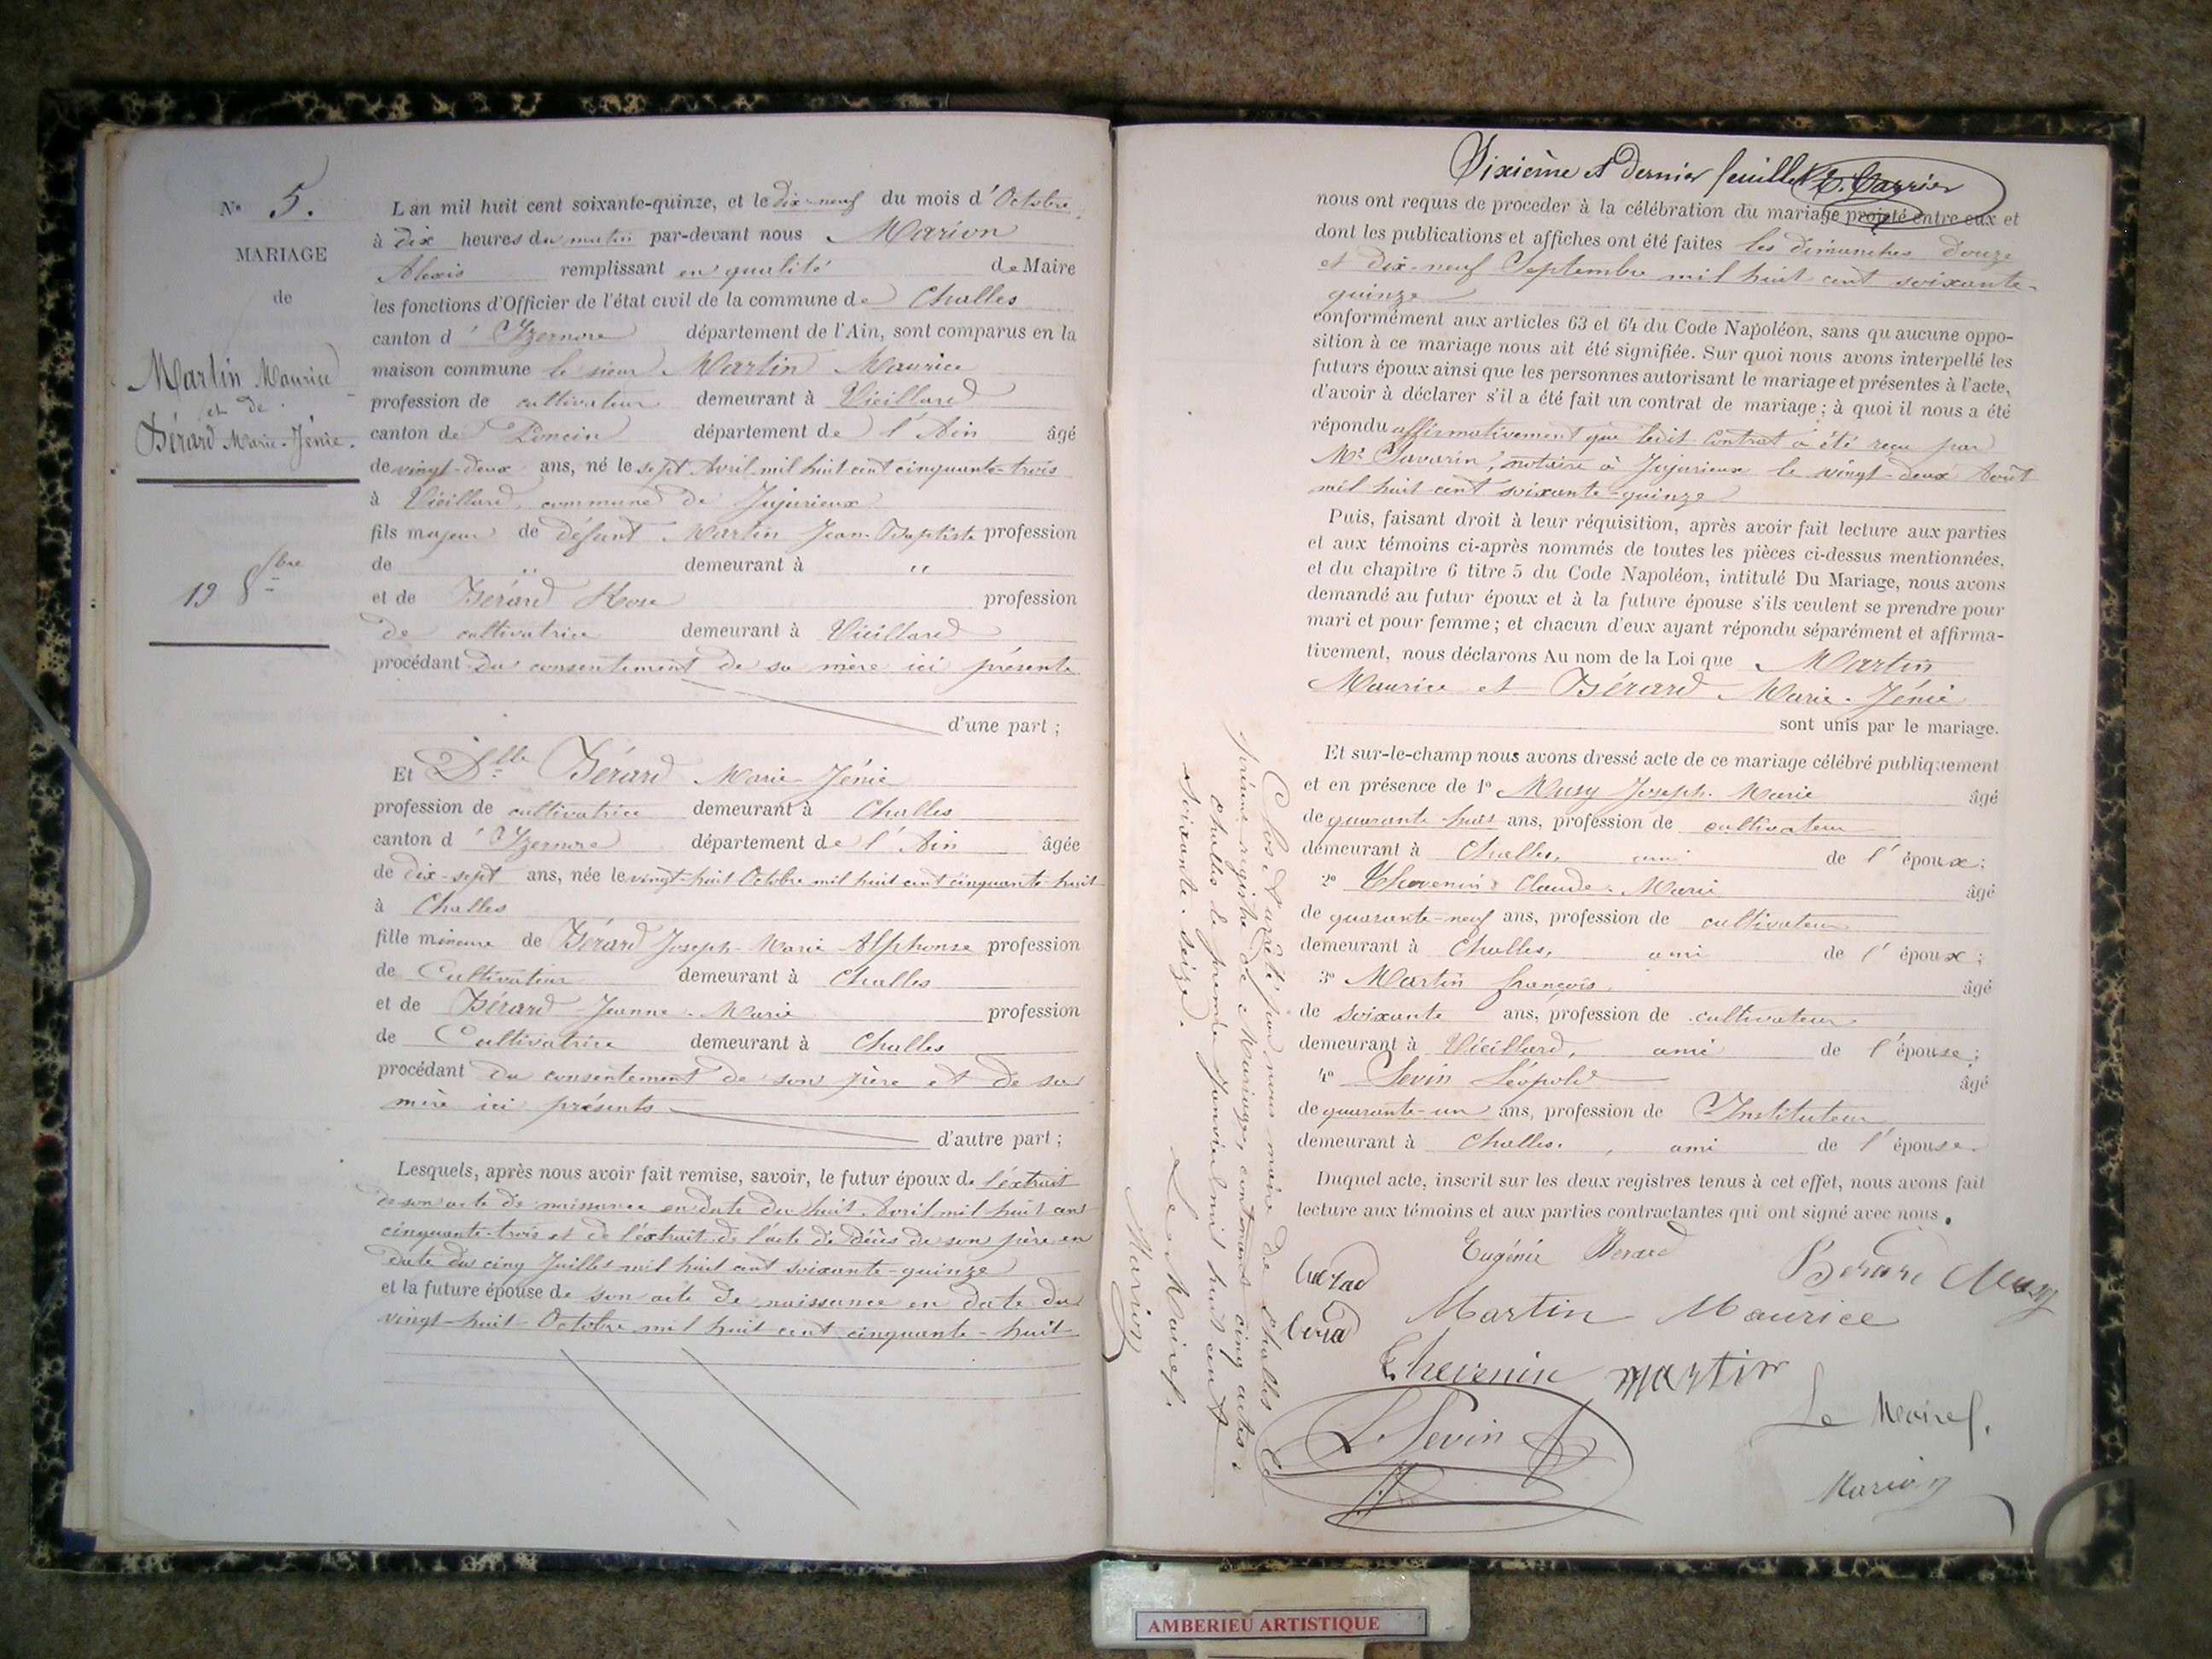 N° 5.
MARIAGE
de
Martin Maurice
et de
Bérard Marie-Jénie.
19 8bre
L'an mil huit cent soixante-quinze, et le dix-neuf du mois d'Octobre,
à dix heures du matin par-devant nous Marion
Alexis remplissant en qualité de Maire
les fonctions d'Officier de l'état civil de la commune de Challes
canton d'Izernore département de l'Ain, sont comparus en la
maison commune le sieur Martin Maurice
profession de cultivateur demeurant à Vieillard
canton de Poncin département de l'Ain âgé
de vingt-deux ans, né le sept Avril mil huit cent cinquante-trois
à Vieillard, commune de Jujurieux
fils majeur de défunt Martin Jean-Baptiste profession
de " demeurant à "
et de Bérard Rose profession
de cultivatrice demeurant à Vieillard
procédant du consentement de sa mère ici présente
d'une part ;
Et Dlle Bérard Marie-Jénie
profession de cultivatrice demeurant à Challes
canton d'Izernore département de l'Ain âgée
de dix-sept ans, née le vingt-huit Octobre mil huit cent cinquante-huit
à Challes
fille mineure de Bérard Joseph-Marie-Alphonse profession
de Cultivateur demeurant à Challes
et de Bérard Jeanne-Marie profession
de Cultivatrice demeurant à Challes
procédant du consentement de son père et de sa
mère ici présents
d'autre part ;
Lesquels, après nous avoir fait remise, savoir, le futur époux de l'extrait
de son acte de naissance en date du huit Avril mil huit cent
cinquante-trois et de l'extrait de l'acte de décès de son père en
date du cinq Juillet mil huit cent soixante-quinze
et la future épouse de son acte de naissance en date du
vingt-huit Octobre mil huit cent cinquante-huit
Sixième et dernier feuillet
nous ont requis de procéder à la célébration du mariage projeté entre eux et
dont les publications et affiches ont été faites les dimanches douze
et dix-neuf Septembre mil huit cent soixante-
quinze
conformément aux articles 63 et 64 du Code Napoléon, sans qu'aucune oppo-
sition à ce mariage nous ait été signifiée. Sur quoi nous avons interpellé les
futurs époux ainsi que les personnes autorisant le mariage et présentes à l'acte,
d'avoir à déclarer s'il a été fait un contrat de mariage ; à quoi il nous a été
répondu affirmativement que ledit Contrat a été reçu par
Me Savarin, notaire à Jujurieux le vingt-deux Août
mil huit cent soixante-quinze
Puis, faisant droit à leur réquisition, après avoir fait lecture aux parties
et aux témoins ci-après nommés de toutes les pièces ci-dessus mentionnées,
et du chapitre 6 titre 5 du Code Napoléon, intitulé Du Mariage, nous avons
demandé au futur époux et à la future épouse s'ils veulent se prendre pour
mari et pour femme ; et chacun d'eux ayant répondu séparément et affirma-
tivement, nous déclarons Au nom de la Loi que Martin
Maurice et Bérard Marie-Jénie
sont unis par le mariage.
Et sur-le-champ nous avons dressé acte de ce mariage célébré publiquement
et en présence de 1° Musy Joseph-Marie âgé
de quarante-huit ans, profession de cultivateur
demeurant à Challes, ami de l'époux ;
2° Thevenin Claude-Marie âgé
de quarante-neuf ans, profession de cultivateur
demeurant à Challes, ami de l'époux ;
3° Martin françois âgé
de soixante ans, profession de cultivateur
demeurant à Vieillard, ami de l'épouse ;
4° Sevin Léopold âgé
de quarante-un ans, profession de Instituteur
demeurant à Challes, ami de l'épouse.
Duquel acte, inscrit sur les deux registres tenus à cet effet, nous avons fait
lecture aux témoins et aux parties contractantes qui ont signé avec nous.
Eugénie Berard
Bérard Musy
Martin Maurice
Thevenin Martin
L. Sevin
Le Maire
Marion
Clos & arrêté par nous maire de Challes le
présent registre de Mariages, contenant cinq actes.
Challes le premier Janvier mil huit cent
soixante-seize.
Le Maire
Marion
AMBERIEU ARTISTIQUE